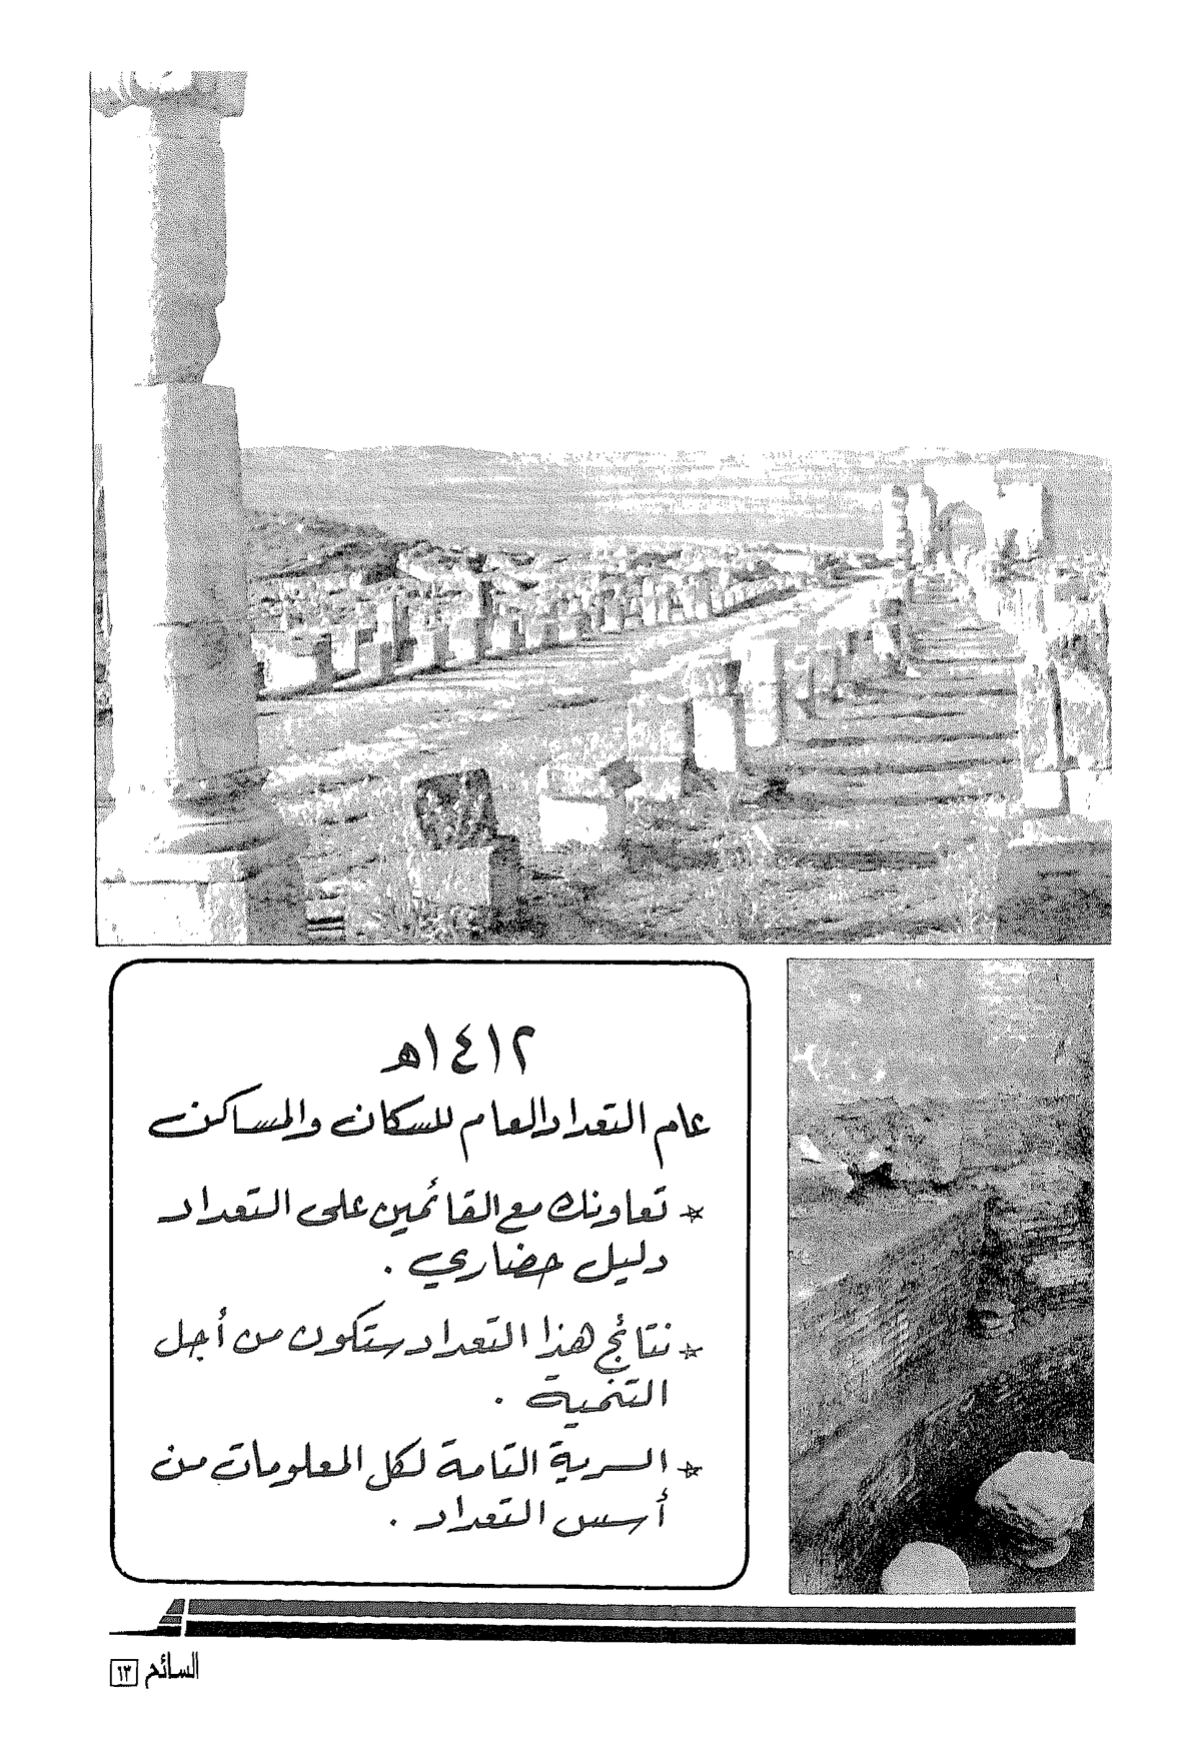 ١٤١٢هـ
عام التعداد العام للسكان والمساكن
* تعاونك مع القائمين على التعداد
دليل حضاري .
* نتائج هذا التعداد ستكون من أجل
التنمية .
* السرية التامة لكل المعلومات من
أسس التعداد .
السائح ١٣